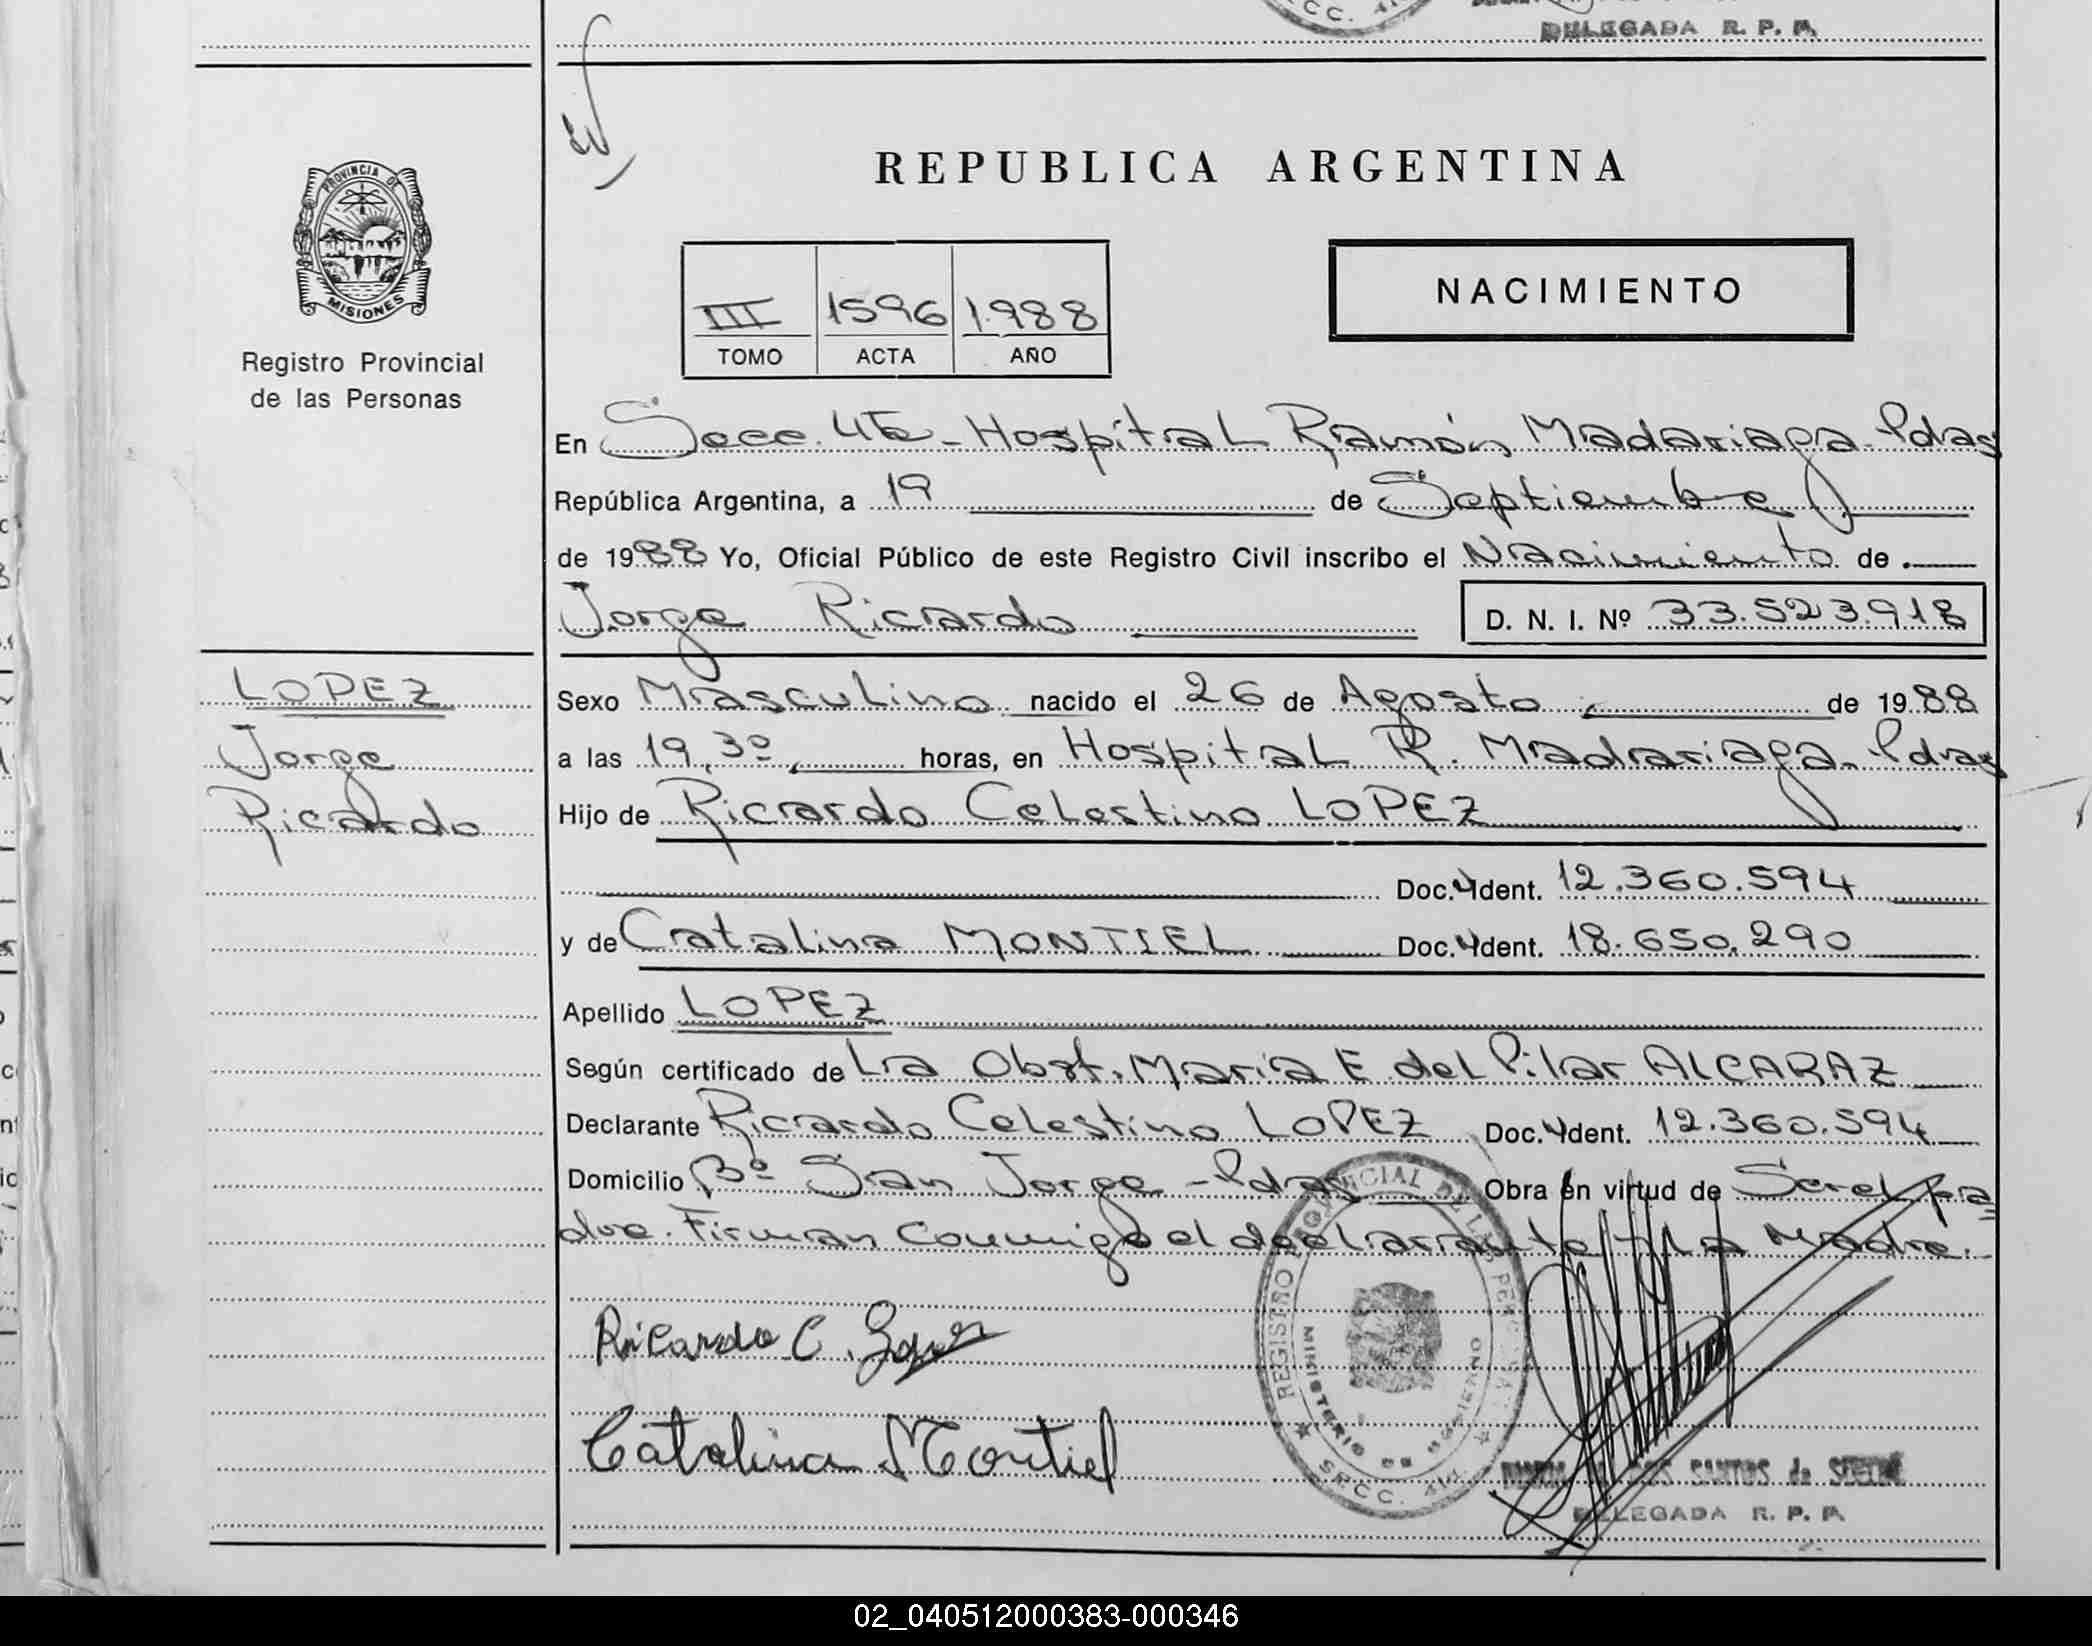 DELEGADA R. P. P.
PROVINCIA DE
MISIONES
Registro Provincial
de las Personas
REPUBLICA ARGENTINA
III 1596 1988
TOMO ACTA AÑO
NACIMIENTO
En Secc. 4ta - Hospital Ramón Madariaga - Pdas
República Argentina, a 19 de Septiembre
de 1988 Yo, Oficial Público de este Registro Civil inscribo el Nacimiento de
Jorge Ricardo D. N. I. Nº 33.523.918
LOPEZ
Jorge
Ricardo
Sexo Masculino nacido el 26 de Agosto de 1988
a las 19,30 horas, en Hospital R. Madariaga - Pdas
Hijo de Ricardo Celestino LOPEZ
Doc. Ident. 12.360.594
y de Catalina MONTIEL Doc. Ident. 18.650.290
Apellido LOPEZ
Según certificado de La Obst. María E. del Pilar ALCARAZ
Declarante Ricardo Celestino LOPEZ Doc. Ident. 12.360.594
Domicilio Bº San Jorge - Pdas Obra en virtud de Ser el pa=
dre. Firman Conmigo el declarante y La Madre.
Ricardo C. Lopez
Catalina Montiel
REGISTRO PROVINCIAL DE LAS PERSONAS
MINISTERIO DE GOBIERNO
SECC. 4ta
DOS SANTOS de
DELEGADA R. P. P.
02_040512000383-000346